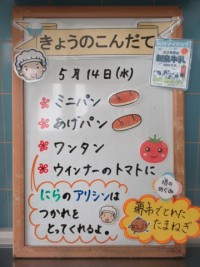 きょうのこんだて
5月14日(水)
ミニパン
あげパン
ワンタン
ウインナーのトマトに
にらのアリシンは
つかれを
とってくれるよ。
畑の
めぐみ
でとれた
たまねぎ